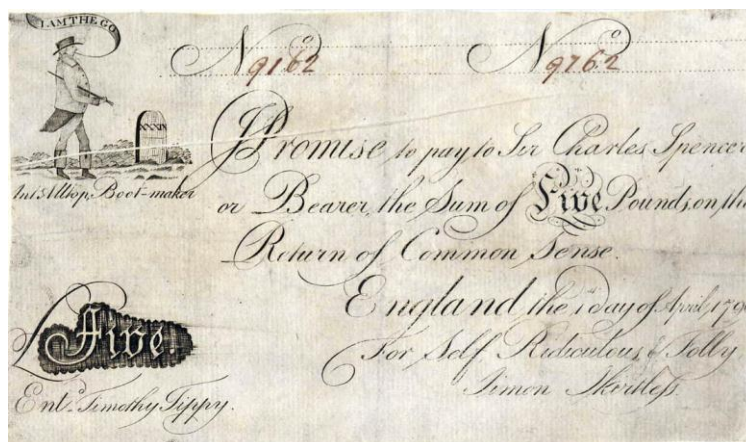 I AM THE GO
No 9162 No 9762
XXXIX
Ant. Alltop, Boot-maker
I Promise to pay to Sir Charles Spencer
or Bearer, the Sum of Five Pounds, on the
Return of Common Sense.
England, the 1 day of April, 179
For Self, Ridiculous, & Folly
Simon Skirtless.
Five
Entd. Timothy Tippy.